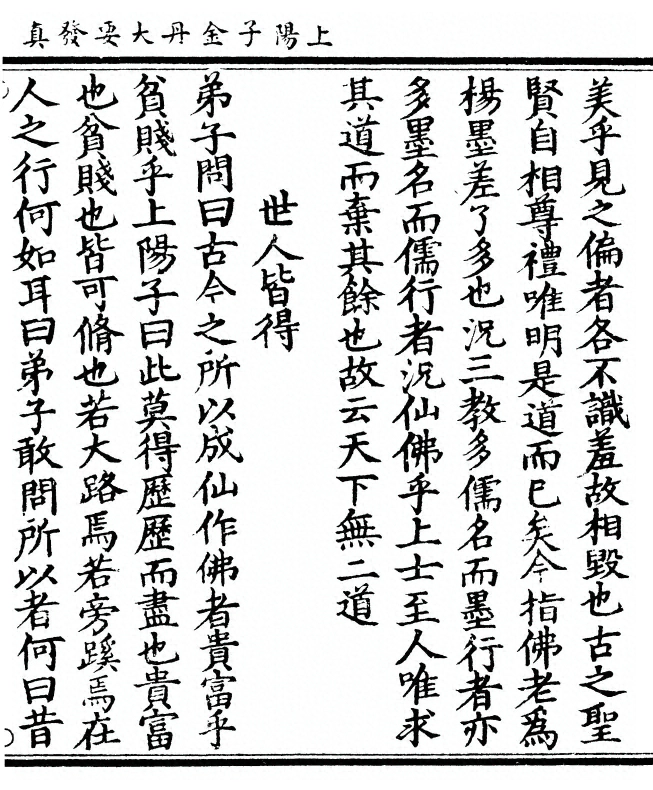 上陽子金丹大要發真
美乎見之偏者各不識羞故相毀也古之聖
賢自相尊禮唯明是道而已矣今指佛老爲
楊墨差了多也況三教多儒名而墨行者亦
多墨名而儒行者況仙佛乎上士至人唯求
其道而棄其餘也故云天下無二道
世人皆得
弟子問曰古今之所以成仙作佛者貴富乎
貧賤乎上陽子曰此莫得歷歷而盡也貴富
也貧賤也皆可脩也若大路焉若旁蹊焉在
人之行何如耳曰弟子敢問所以者何曰昔